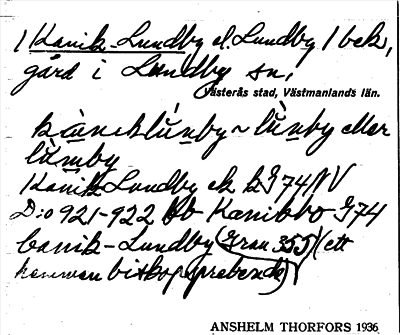 1 Kanik-Lundby el. Lundby 1 bek,
gård i Lundby sn,
Västerås stad, Västmanlands län.
kàniklùnby ~ lùnby eller
lùmby
Kanik Lundby ek kG74NV
D:o 921-922 Kanikbo G74
canik-Lundby (Grau 355) (ett
biskopsprebende)
ANSHELM THORFORS 1936